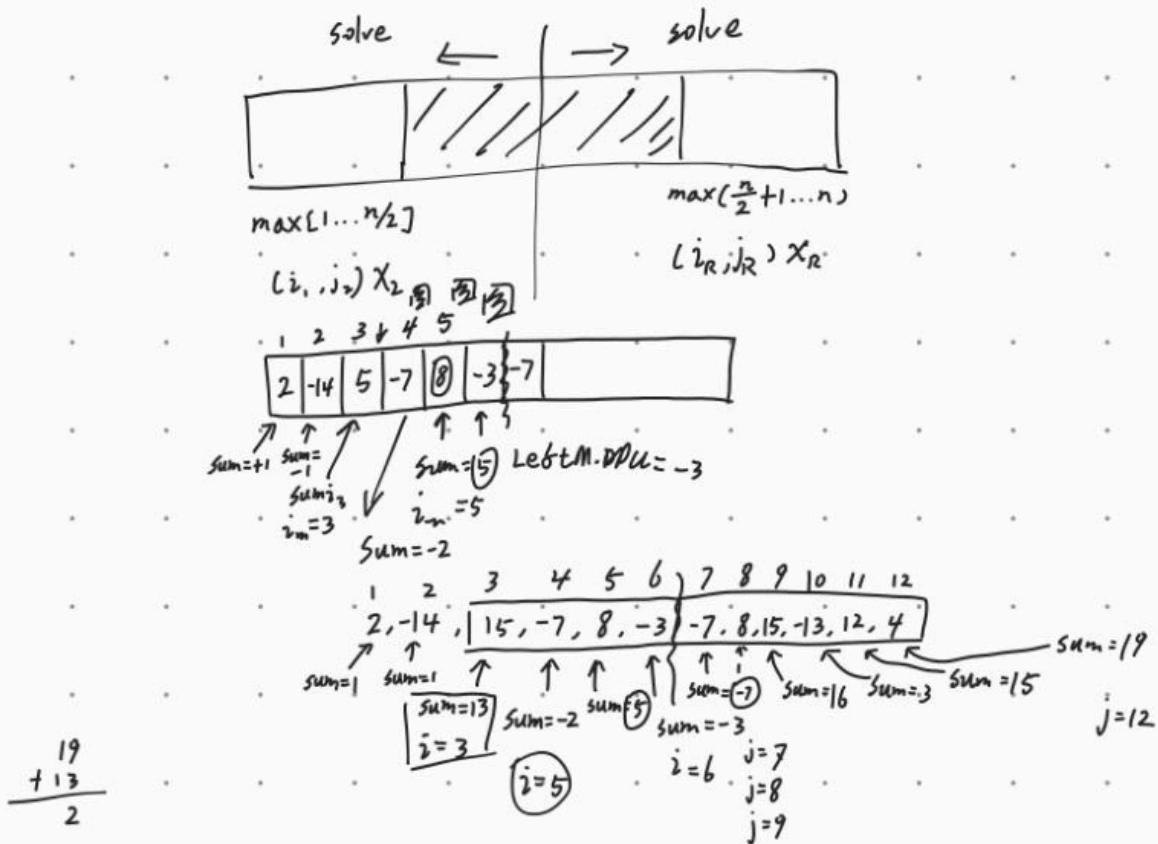 solve ← → solve
max[1...n/2] max(n/2+1...n)
(i₁,j₂) X₂ (i_R,j_R) X_R
1 2 3 ↓ 4 5
2 -14 5 -7 8 -3 -7
sum=+1 sum=-1 sum=5 = -3
i_m=3 =5
sum=-2
1 2 3 4 5 6 7 8 9 10 11 12
2, -14, 15, -7, 8, -3 -7, 8, 15, -13, 12, 4
sum=1 sum=1 sum=13 sum=-2 sum=5 sum=-3 sum=-7 sum=16 sum=3 sum=15 sum=19
i=3 i=5 i=6 j=7 j=12
j=8
j=9
19
+13
2